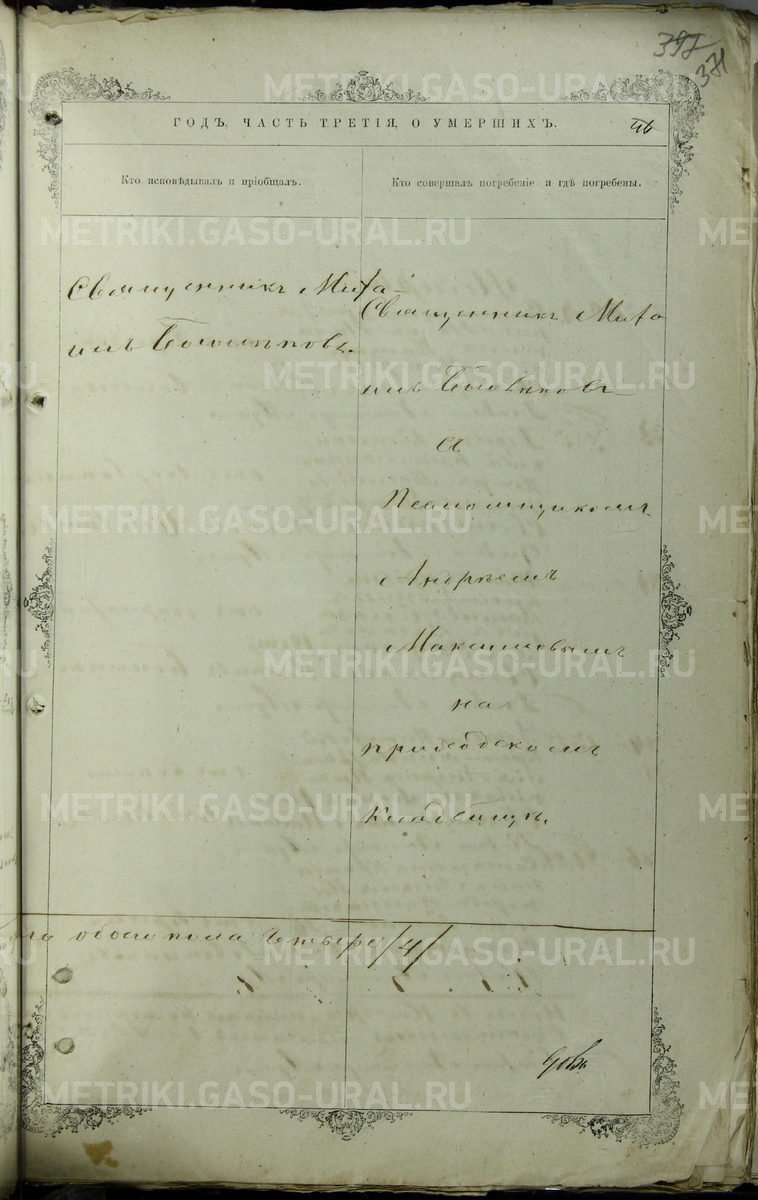 397
371
ГОДЪ, ЧАСТЬ ТРЕТІЯ, О УМЕРШИХЪ.
46
Кто исповѣдывалъ и пріобщалъ.
Кто совершалъ погребеніе и гдѣ погребены.
Священникъ Миха-
илъ
Священникъ Миха
илъ
съ
Псаломщикомъ
Андреемъ
Максимовымъ
на
приходскомъ
кладбищѣ.
обоего пола четыре /4/
METRIKI.GASO-URAL.RU